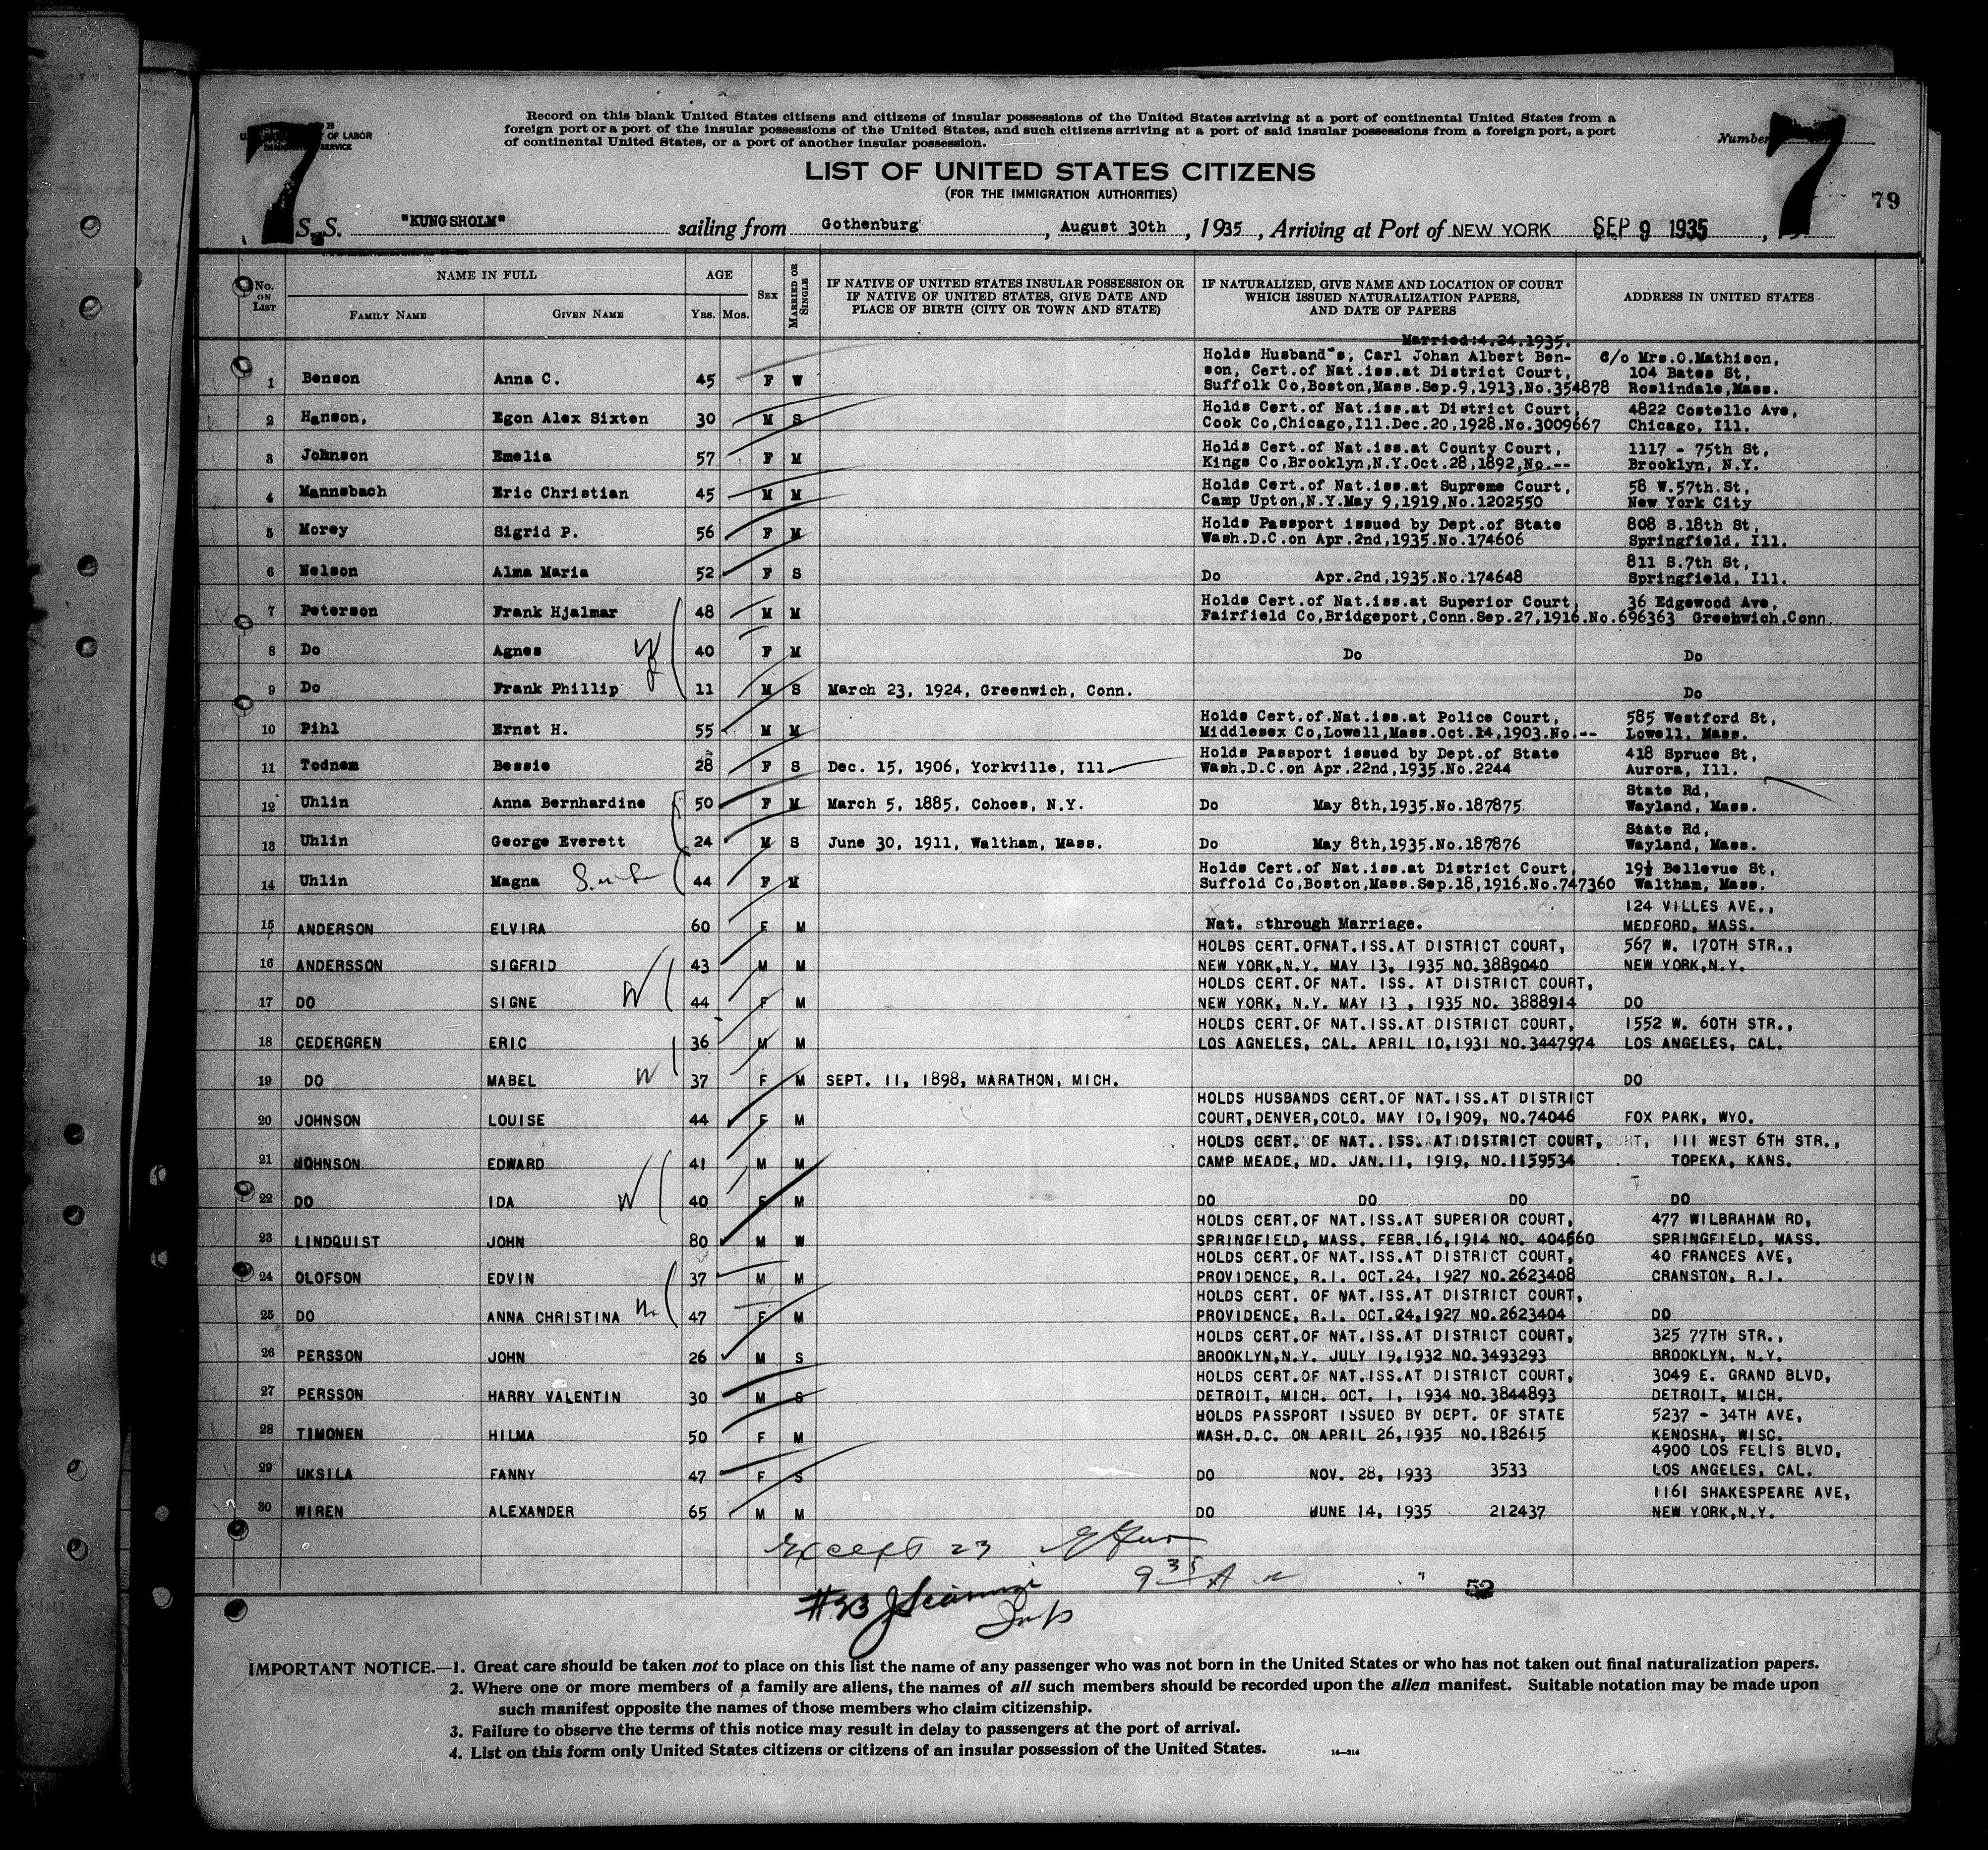 Record on this blank United States citizens and citizens of insular possessions of the United States arriving at a port of continental United States from a
foreign port or a port of the insular possessions of the United States, and such citizens arriving at a port of said insular possessions from a foreign port, a port
of continental United States, or a port of another insular possession.
7 OF LABOR SERVICE
Number 7
LIST OF UNITED STATES CITIZENS
(FOR THE IMMIGRATION AUTHORITIES)
79
S. S. "KUNGSHOLM" sailing from Gothenburg, August 30th, 1935, Arriving at Port of NEW YORK SEP 9 1935,
No. ON LIST NAME IN FULL FAMILY NAME GIVEN NAME AGE YRS. MOS. SEX MARRIED OR SINGLE
IF NATIVE OF UNITED STATES INSULAR POSSESSION OR
IF NATIVE OF UNITED STATES, GIVE DATE AND
PLACE OF BIRTH (CITY OR TOWN AND STATE)
IF NATURALIZED, GIVE NAME AND LOCATION OF COURT
WHICH ISSUED NATURALIZATION PAPERS,
AND DATE OF PAPERS
ADDRESS IN UNITED STATES
Married:4.24.1935.
Holds Husband"s, Carl Johan Albert Ben- C/o Mrs.O.Mathison,
son, Cert.of Nat.iss.at District Court, 104 Bates St,
1 Benson Anna C. 45 F W Suffolk Co,Boston,Mass.Sep.9,1913,No.354878 Roslindale,Mass.
Holds Cert.of Nat.iss.at District Court, 4822 Costello Ave,
2 Hanson, Egon Alex Sixten 30 M S Cook Co,Chicago,Ill.Dec.20,1928.No.3009667 Chicago, Ill.
Holds Cert.of Nat.iss.at County Court, 1117 - 75th St,
3 Johnson Emelia 57 F M Kings Co,Brooklyn,N.Y.Oct.28,1892,No.-- Brooklyn, N.Y.
Holds Cert.of Nat.iss.at Supreme Court, 58 W.57th.St,
4 Mannsbach Eric Christian 45 M M Camp Upton,N.Y.May 9,1919,No.1202550 New York City
Holds Passport issued by Dept.of State 808 S.18th St,
5 Morey Sigrid P. 56 F M Wash.D.C.on Apr.2nd,1935.No.174606 Springfield, Ill.
811 S.7th St,
6 Nelson Alma Maria 52 F S Do Apr.2nd,1935.No.174648 Springfield, Ill.
Holds Cert.of Nat.iss.at Superior Court, 36 Edgewood Ave,
7 Peterson Frank Hjalmar 48 M M Fairfield Co,Bridgeport,Conn.Sep.27,1916.No.696363 Greenwich,Conn.
8 Do Agnes W 40 F M Do Do
9 Do Frank Phillip 11 M S March 23, 1924, Greenwich, Conn. Do
Holds Cert.of.Nat.iss.at Police Court, 585 Westford St,
10 Pihl Ernst H. 55 M M Middlesex Co,Lowell,Mass.Oct.14,1903.No.-- Lowell, Mass.
Holds Passport issued by Dept.of State 418 Spruce St,
11 Todnem Bessie 28 F S Dec. 15, 1906, Yorkville, Ill. Wash.D.C.on Apr.22nd,1935.No.2244 Aurora, Ill.
State Rd,
12 Uhlin Anna Bernhardine 50 F M March 5, 1885, Cohoes, N.Y. Do May 8th,1935.No.187875 Wayland, Mass.
State Rd,
13 Uhlin George Everett 24 M S June 30, 1911, Waltham, Mass. Do May 8th,1935.No.187876 Wayland, Mass.
Holds Cert.of Nat.iss.at District Court, 19½ Bellevue St,
14 Uhlin Magna 44 F M Suffold Co,Boston,Mass.Sep.18,1916.No.747360 Waltham, Mass.
124 VILLES AVE.,
15 ANDERSON ELVIRA 60 F M Nat. sthrough Marriage. MEDFORD, MASS.
HOLDS CERT.OFNAT.ISS.AT DISTRICT COURT, 567 W. 170TH STR.,
16 ANDERSSON SIGFRID 43 M M NEW YORK,N.Y. MAY 13, 1935 NO.3889040 NEW YORK,N.Y.
HOLDS CERT.OF NAT. ISS. AT DISTRICT COURT,
17 DO SIGNE W 44 F M NEW YORK, N.Y. MAY 13 , 1935 NO. 3888914 DO
HOLDS CERT.OF NAT.ISS.AT DISTRICT COURT, 1552 W. 60TH STR.,
18 CEDERGREN ERIC 36 M M LOS AGNELES, CAL. APRIL 10,1931 NO.3447974 LOS ANGELES, CAL.
19 DO MABEL W 37 F M SEPT. 11, 1898, MARATHON, MICH. DO
HOLDS HUSBANDS CERT.OF NAT.ISS.AT DISTRICT
20 JOHNSON LOUISE 44 F M COURT,DENVER,COLO. MAY 10,1909, NO.74046 FOX PARK, WYO.
HOLDS CERT. OF NAT. ISS. AT DISTRICT COURT, 111 WEST 6TH STR.,
21 JOHNSON EDWARD 41 M M CAMP MEADE, MD. JAN.11, 1919, NO.1159534 TOPEKA, KANS.
22 DO IDA W 40 F M DO DO DO DO
HOLDS CERT.OF NAT.ISS.AT SUPERIOR COURT, 477 WILBRAHAM RD,
23 LINDQUIST JOHN 80 M W SPRINGFIELD, MASS. FEBR.16,1914 NO. 404560 SPRINGFIELD, MASS.
HOLDS CERT.OF NAT.ISS.AT DISTRICT COURT, 40 FRANCES AVE,
24 OLOFSON EDVIN 37 M M PROVIDENCE, R.I. OCT.24, 1927 NO.2623408 CRANSTON, R.I.
HOLDS CERT. OF NAT.ISS.AT DISTRICT COURT,
25 DO ANNA CHRISTINA 47 F M PROVIDENCE, R.I. OCT.24,1927 NO.2623404 DO
HOLDS CERT.OF NAT.ISS.AT DISTRICT COURT, 325 77TH STR.,
26 PERSSON JOHN 26 M S BROOKLYN,N.Y. JULY 19,1932 NO.3493293 BROOKLYN, N.Y.
HOLDS CERT.OF NAT.ISS.AT DISTRICT COURT, 3049 E. GRAND BLVD,
27 PERSSON HARRY VALENTIN 30 M S DETROIT, MICH. OCT. 1, 1934 NO.3844893 DETROIT, MICH.
HOLDS PASSPORT ISSUED BY DEPT. OF STATE 5237 - 34TH AVE,
28 TIMONEN HILMA 50 F M WASH.D.C. ON APRIL 26,1935 NO.182615 KENOSHA, WISC.
4900 LOS FELIS BLVD,
29 UKSILA FANNY 47 F S DO NOV. 28, 1933 3533 LOS ANGELES, CAL.
1161 SHAKESPEARE AVE,
30 WIREN ALEXANDER 65 M M DO HUNE 14, 1935 212437 NEW YORK,N.Y.
Except 23
9 35 A
52
#33
IMPORTANT NOTICE.—1. Great care should be taken not to place on this list the name of any passenger who was not born in the United States or who has not taken out final naturalization papers.
2. Where one or more members of a family are aliens, the names of all such members should be recorded upon the alien manifest. Suitable notation may be made upon
such manifest opposite the names of those members who claim citizenship.
3. Failure to observe the terms of this notice may result in delay to passengers at the port of arrival.
4. List on this form only United States citizens or citizens of an insular possession of the United States. 14—214